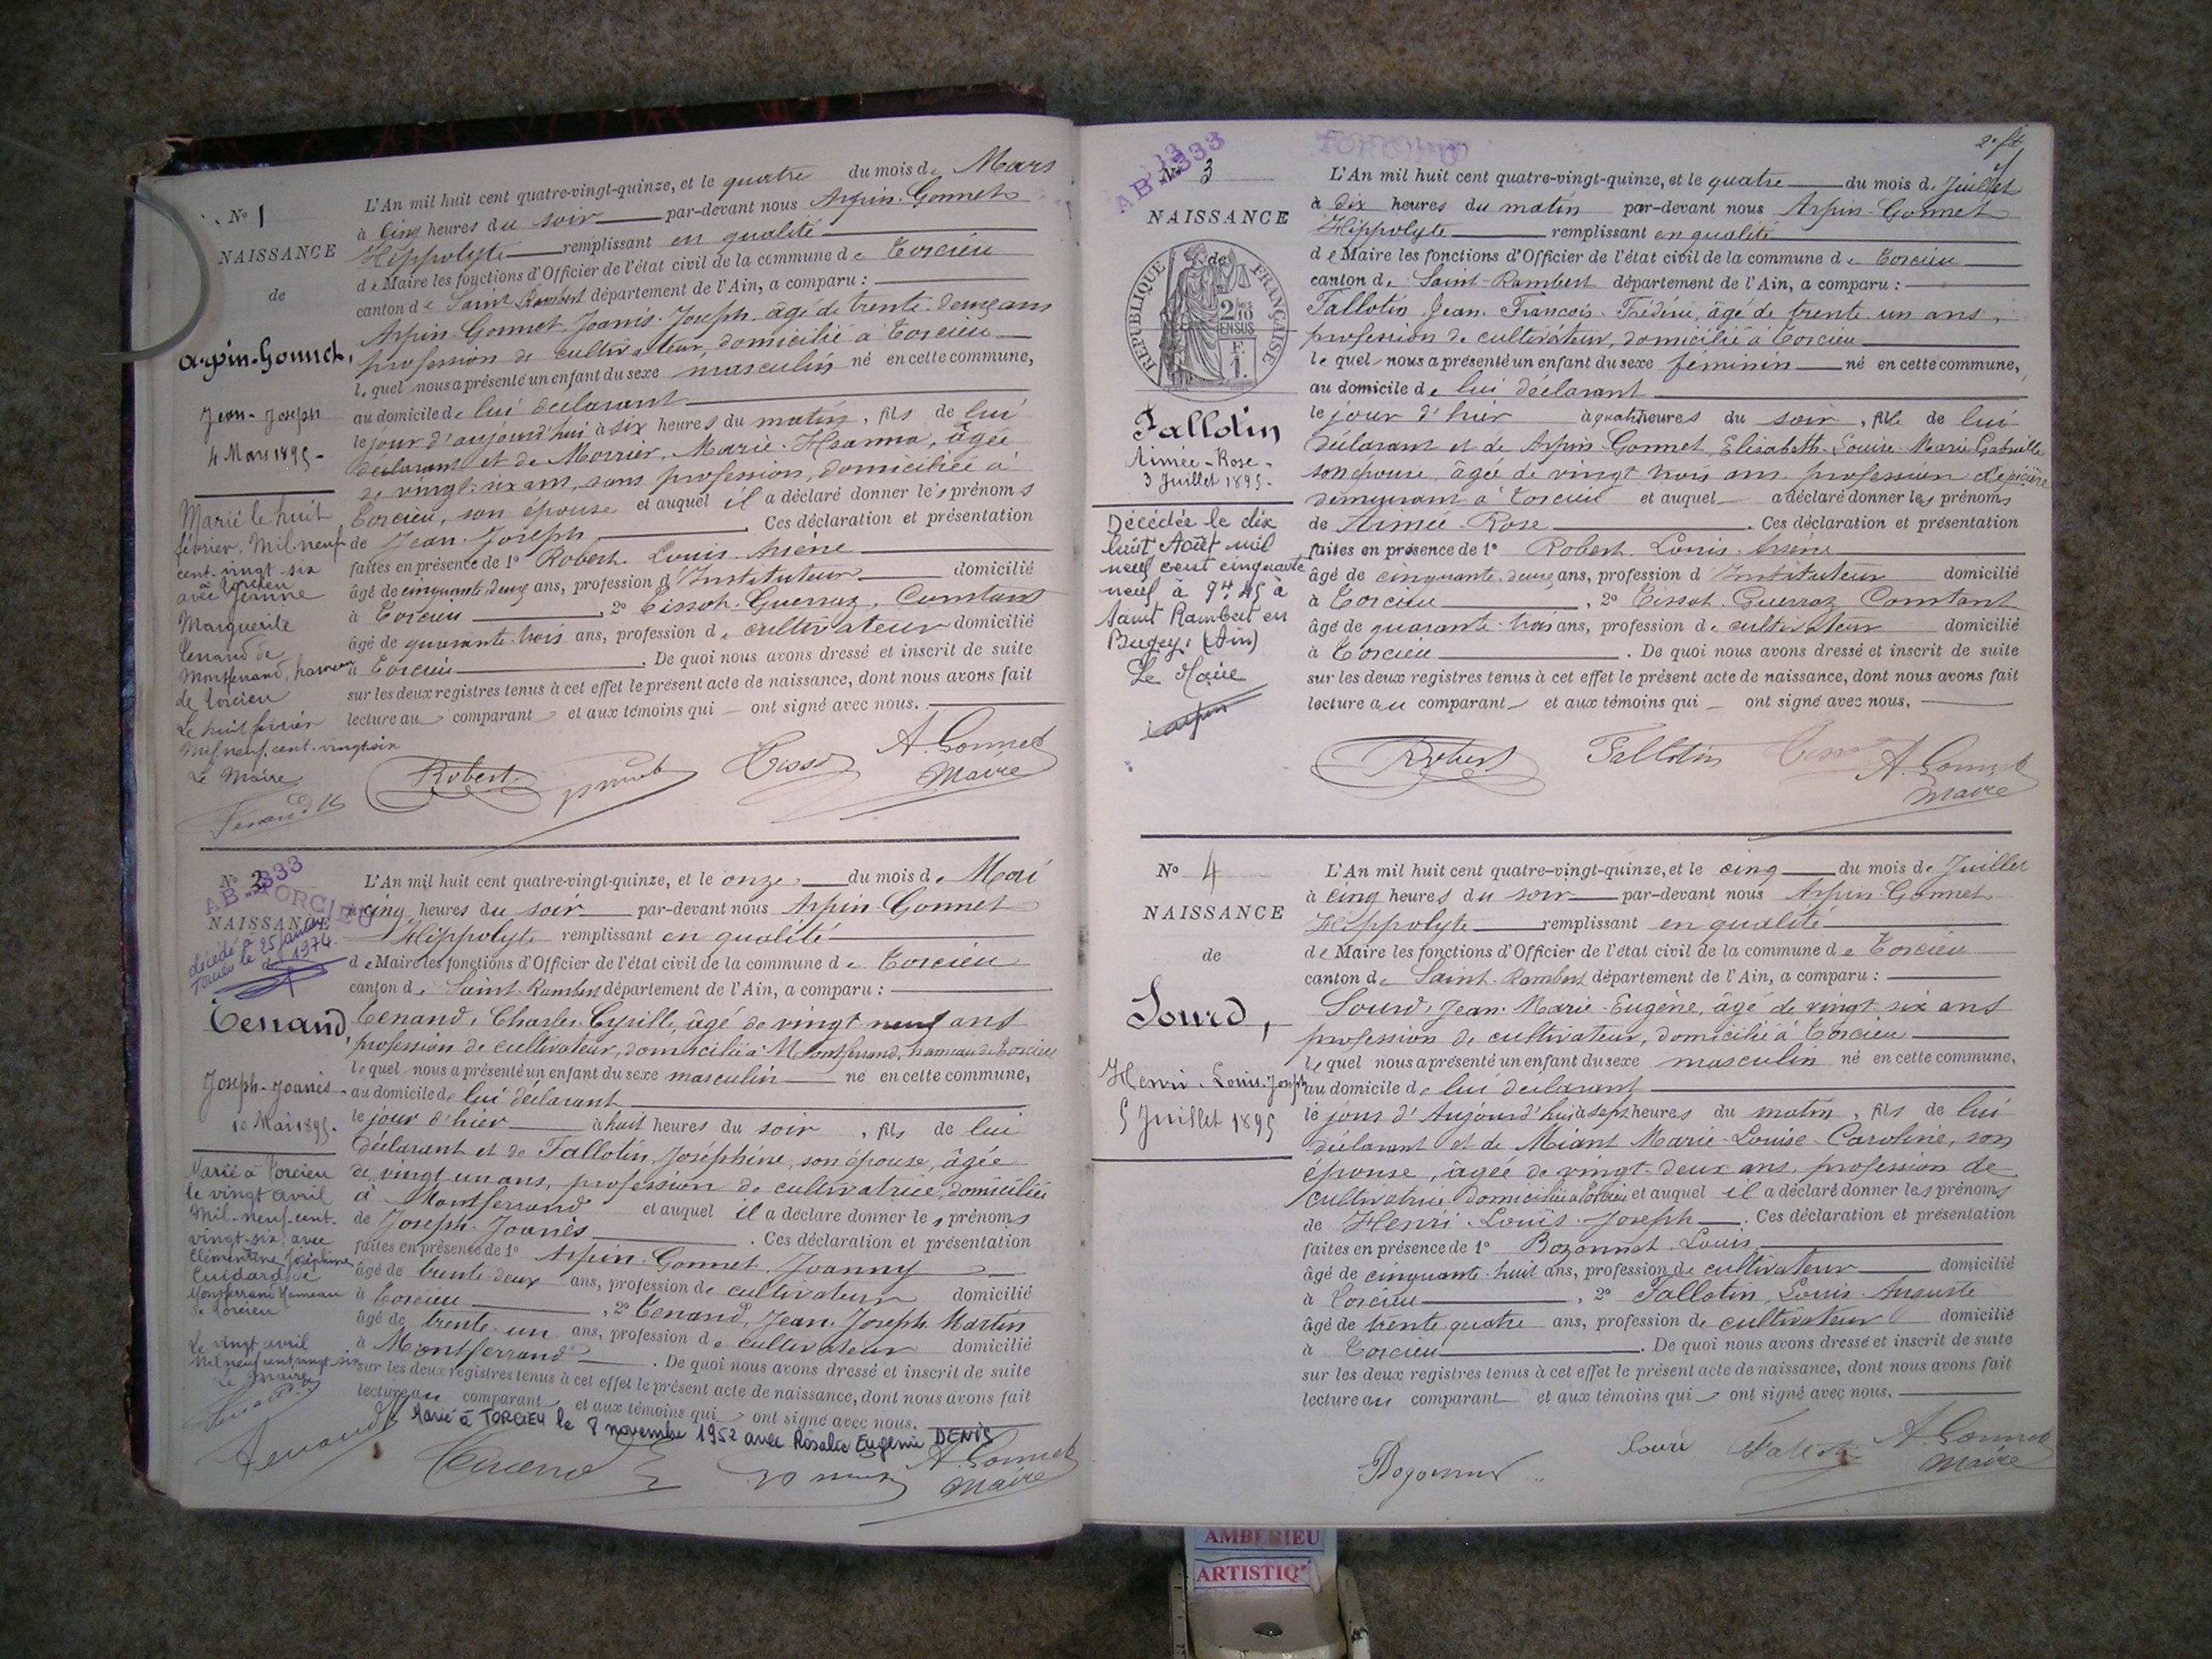 N° 1
NAISSANCE
de
Arpin-Gonnet,
Jean-Joseph
4 Mars 1895-
Marié le huit
février, Mil neuf
cent vingt-six
à Torcieu
avec Jeanne
Marguerite
Tenand de
Montferrand, hameau
de Torcieu
Le huit février
Mil neuf cent vingt six
Le Maire
L'An mil huit cent quatre-vingt-quinze, et le quatre du mois de Mars
à cinq heures du soir par-devant nous Arpin-Gonnet
Hippolyte remplissant en qualité
de Maire les fonctions d'Officier de l'état civil de la commune de Torcieu
canton de Saint Rambert département de l'Ain, a comparu :
Arpin-Gonnet Joanis-Joseph âgé de trente-deux ans
profession de cultivateur, domicilié à Torcieu
lequel nous a présenté un enfant du sexe masculin né en cette commune,
au domicile de lui déclarant
le jour d'aujourd'hui à six heures du matin, fils de lui
déclarant et de Morrier, Marie- âgée
de vingt-six ans, sans profession, domiciliée à
Torcieu, son épouse et auquel il a déclaré donner les prénoms
de Jean-Joseph . Ces déclaration et présentation
faites en présence de 1° Robert Louis Arsène
âgé de cinquante deux ans, profession d'Instituteur domicilié
à Torcieu , 2° Tissot-Guerraz, Constant
âgé de quarante-trois ans, profession de cultivateur domicilié
à Torcieu . De quoi nous avons dressé et inscrit de suite
sur les deux registres tenus à cet effet le présent acte de naissance, dont nous avons fait
lecture au comparant et aux témoins qui ont signé avec nous.
Robert A. Gonnet
Maire
N° 2
AB-333
TORCIEU
NAISSANCE
décédé à
Torcieu le 25 janvier
1974
Tenand,
Joseph-Joanès
10 Mai 1895.
Marié à Torcieu
le vingt avril
Mil-neuf-cent-
vingt-six avec
Clémentine Joséphine
Cuidard de
Montferrand Hameau
de Torcieu
Le vingt avril
Mil neuf cent vingt-six
Le Maire
L'An mil huit cent quatre-vingt-quinze, et le onze du mois de Mai
à cinq heures du soir par-devant nous Arpin-Gonnet
Hippolyte remplissant en qualité
de Maire les fonctions d'Officier de l'état civil de la commune de Torcieu
canton de Saint-Rambert département de l'Ain, a comparu :
Tenand, Charles Cyrille, âgé de vingt neuf ans
profession de cultivateur, domicilié à Montferrand, hameau de Torcieu
lequel nous a présenté un enfant du sexe masculin né en cette commune,
au domicile de lui déclarant
le jour d'hier à huit heures du soir, fils de lui
déclarant et de Fallotin, Joséphine, son épouse, âgée
de vingt un ans, profession de cultivatrice, domiciliée
à Montferrand et auquel il a déclaré donner les prénoms
de Joseph-Joanès . Ces déclaration et présentation
faites en présence de 1° Arpin-Gonnet, Joanny
âgé de trente deux ans, profession de cultivateur domicilié
à Torcieu , 2° Tenand, Jean-Joseph Martin
âgé de trente-un ans, profession de cultivateur domicilié
à Montferrand . De quoi nous avons dressé et inscrit de suite
sur les deux registres tenus à cet effet le présent acte de naissance, dont nous avons fait
lecture au comparant et aux témoins qui ont signé avec nous.
Marié à TORCIEU le 8 novembre 1952 avec Rosalie Eugénie DENIS
A. Gonnet
Maire
2e ft
AB-333
TORCIEU
N° 3
NAISSANCE
de
REPUBLIQUE FRANÇAISE
2/10 EN SUS
F.
1.
Fallotin
Aimée-Rose-
3 Juillet 1895-
Décédée le dix
huit Août mil
neuf cent cinquante
neuf à 9h 45 à
Saint Rambert en
Bugey (Ain)
Le Maire
L'An mil huit cent quatre-vingt-quinze, et le quatre du mois de Juillet
à dix heures du matin par-devant nous Arpin-Gonnet
Hippolyte remplissant en qualité
de Maire les fonctions d'Officier de l'état civil de la commune de Torcieu
canton de Saint-Rambert département de l'Ain, a comparu :
Fallotin Jean-François-Frédéric, âgé de trente un ans,
profession de cultivateur, domicilié à Torcieu
lequel nous a présenté un enfant du sexe féminin né en cette commune,
au domicile de lui déclarant
le jour d'hier à quatre heures du soir, fille de lui
déclarant et de Arpin-Gonnet, Elisabeth-Louise-Marie-Gabrielle
son épouse, âgée de vingt trois ans profession d'épicière
demeurant à Torcieu et auquel a déclaré donner les prénoms
de Aimée-Rose . Ces déclaration et présentation
faites en présence de 1° Robert Louis-Arsène
âgé de cinquante deux ans, profession d'Instituteur domicilié
à Torcieu , 2° Tissot-Guerraz Constant
âgé de quarante-trois ans, profession de cultivateur domicilié
à Torcieu . De quoi nous avons dressé et inscrit de suite
sur les deux registres tenus à cet effet le présent acte de naissance, dont nous avons fait
lecture au comparant et aux témoins qui ont signé avec nous.
Robert Fallotin A. Gonnet
Maire
N° 4
NAISSANCE
de
Sourd,
Henri-Louis-Joseph
5 Juillet 1895
L'An mil huit cent quatre-vingt-quinze, et le cinq du mois de Juillet
à cinq heures du soir par-devant nous Arpin-Gonnet
Hippolyte remplissant en qualité
de Maire les fonctions d'Officier de l'état civil de la commune de Torcieu
canton de Saint-Rambert département de l'Ain, a comparu :
Sourd, Jean-Marie-Eugène, âgé de vingt six ans
profession de cultivateur, domicilié à Torcieu
lequel nous a présenté un enfant du sexe masculin né en cette commune,
au domicile de lui déclarant
le jour d'Aujourd'hui à sept heures du matin, fils de lui
déclarant et de Miant Marie-Louise-Caroline, son
épouse, âgée de vingt-deux ans, profession de
cultivatrice domiciliée à Torcieu et auquel il a déclaré donner les prénoms
de Henri-Louis-Joseph . Ces déclaration et présentation
faites en présence de 1° Bozonnet Louis
âgé de cinquante-huit ans, profession de cultivateur domicilié
à Torcieu , 2° Fallotin, Louis-Auguste
âgé de trente quatre ans, profession de cultivateur domicilié
à Torcieu . De quoi nous avons dressé et inscrit de suite
sur les deux registres tenus à cet effet le présent acte de naissance, dont nous avons fait
lecture au comparant et aux témoins qui ont signé avec nous.
A. Gonnet
Maire
AMBERIEU
ARTISTIQ